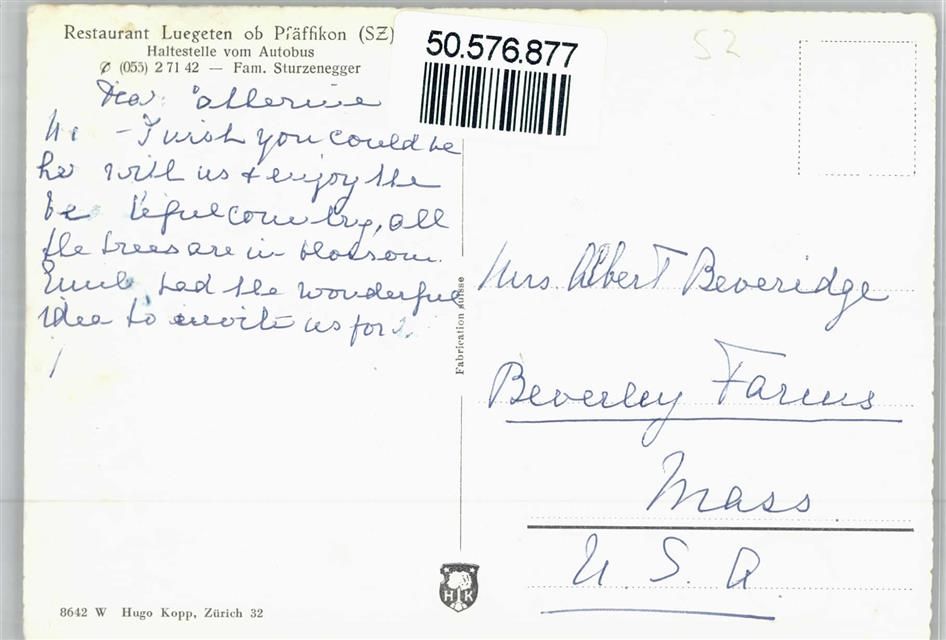 Restaurant Luegeten ob Pfäffikon (SZ)
Haltestelle vom Autobus
✆ (055) 2 71 42 — Fam. Sturzenegger
50.576.877
SZ
Dear atherine
— I wish you could be
he with us & enjoy the
be tiful country, all
the trees are in blossom.
Emil had the wonderful
idea to invite us for
Mrs Albert Beveridge
Beverley Farms
Mass
U. S. A
Fabrication suisse
H K
8642 W Hugo Kopp, Zürich 32